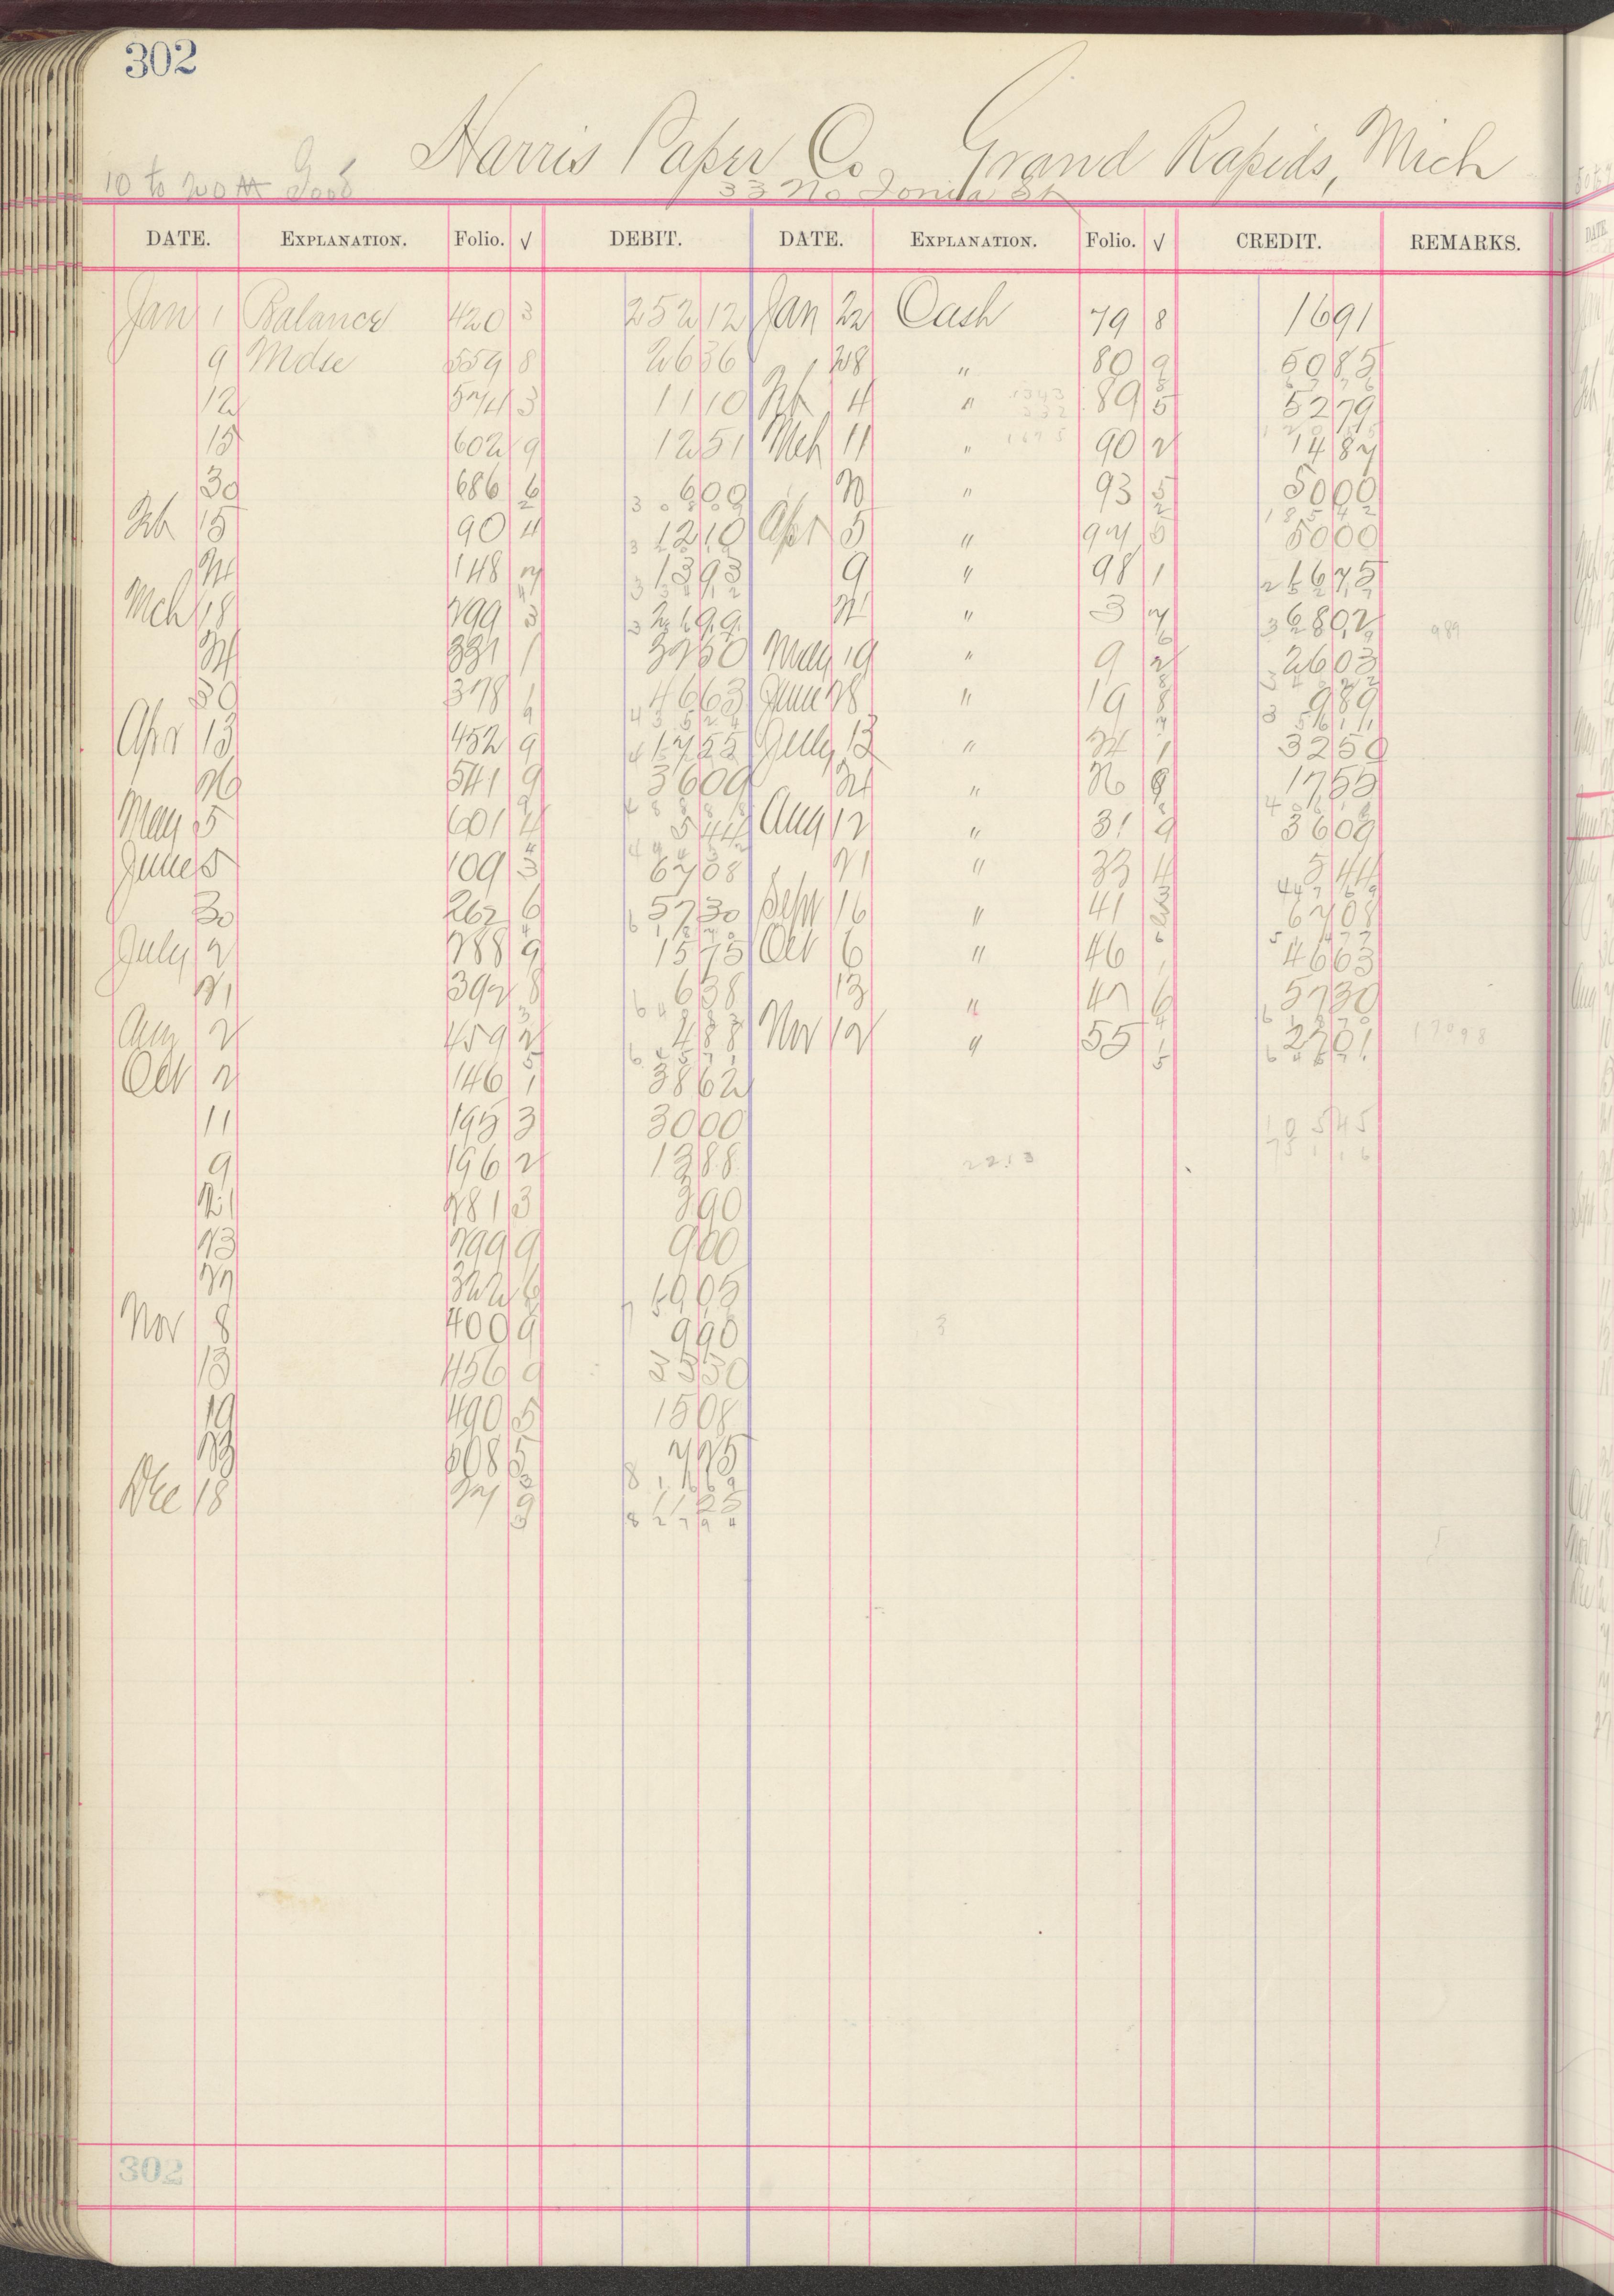 302
Harris Paper Co Grand Rapids, Mich
10 to 20 M Good 33 No Ionia St
DATE. EXPLANATION. Folio. √ DEBIT. DATE. EXPLANATION. Folio. √ CREDIT. REMARKS.
Jan 1 Balance 420 3 252 12 Jan 22 Cash 79 8 16 91
9 Mdse 559 8 26 36 " 28 " 80 9 50 85
12 574 3 11 10 Feb 4 " 89 5 52 79
15 602 9 12 51 Mch 11 " 90 2 14 87
30 686 6 6 00 " 93 5 50 00
Feb 15 90 4 12 10 Apr 5 " 97 5 50 00
148 7 13 93 9 " 98 1 26 75
Mch 18 299 3 26 99 " 3 7 68 02
331 1 32 50 May 19 " 9 2 26 03
30 378 1 46 63 June 28 " 19 8 9 89
Apr 13 452 9 17 55 July 13 " 24 1 32 50
26 541 9 36 09 24 " 26 9 17 55
May 5 601 4 5 44 Aug 12 " 31 9 36 09
June 5 109 3 67 08 21 " 33 4 5 44
30 262 6 57 30 Sept 16 " 41 67 08
July 2 288 9 15 75 Oct 6 " 46 1 46 63
21 392 8 6 38 13 " 47 6 57 30
Aug 2 459 2 4 88 Nov 12 " 55 1 27 01
Oct 2 146 1 38 62
11 195 3 30 00
9 196 2 13 88
21 281 3 3 90
23 299 9 9 00
27 322 6 19 05
Nov 8 400 9 9 90
13 456 9 35 50
19 490 5 15 08
23 508 5 7 75
Dec 18 27 9 11 25
302